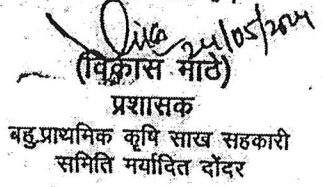 24/05/2024
(विकास माटे)
प्रशासक
बहु.प्राथमिक कृषि साख सहकारी
समिति मर्यादित दोंदर